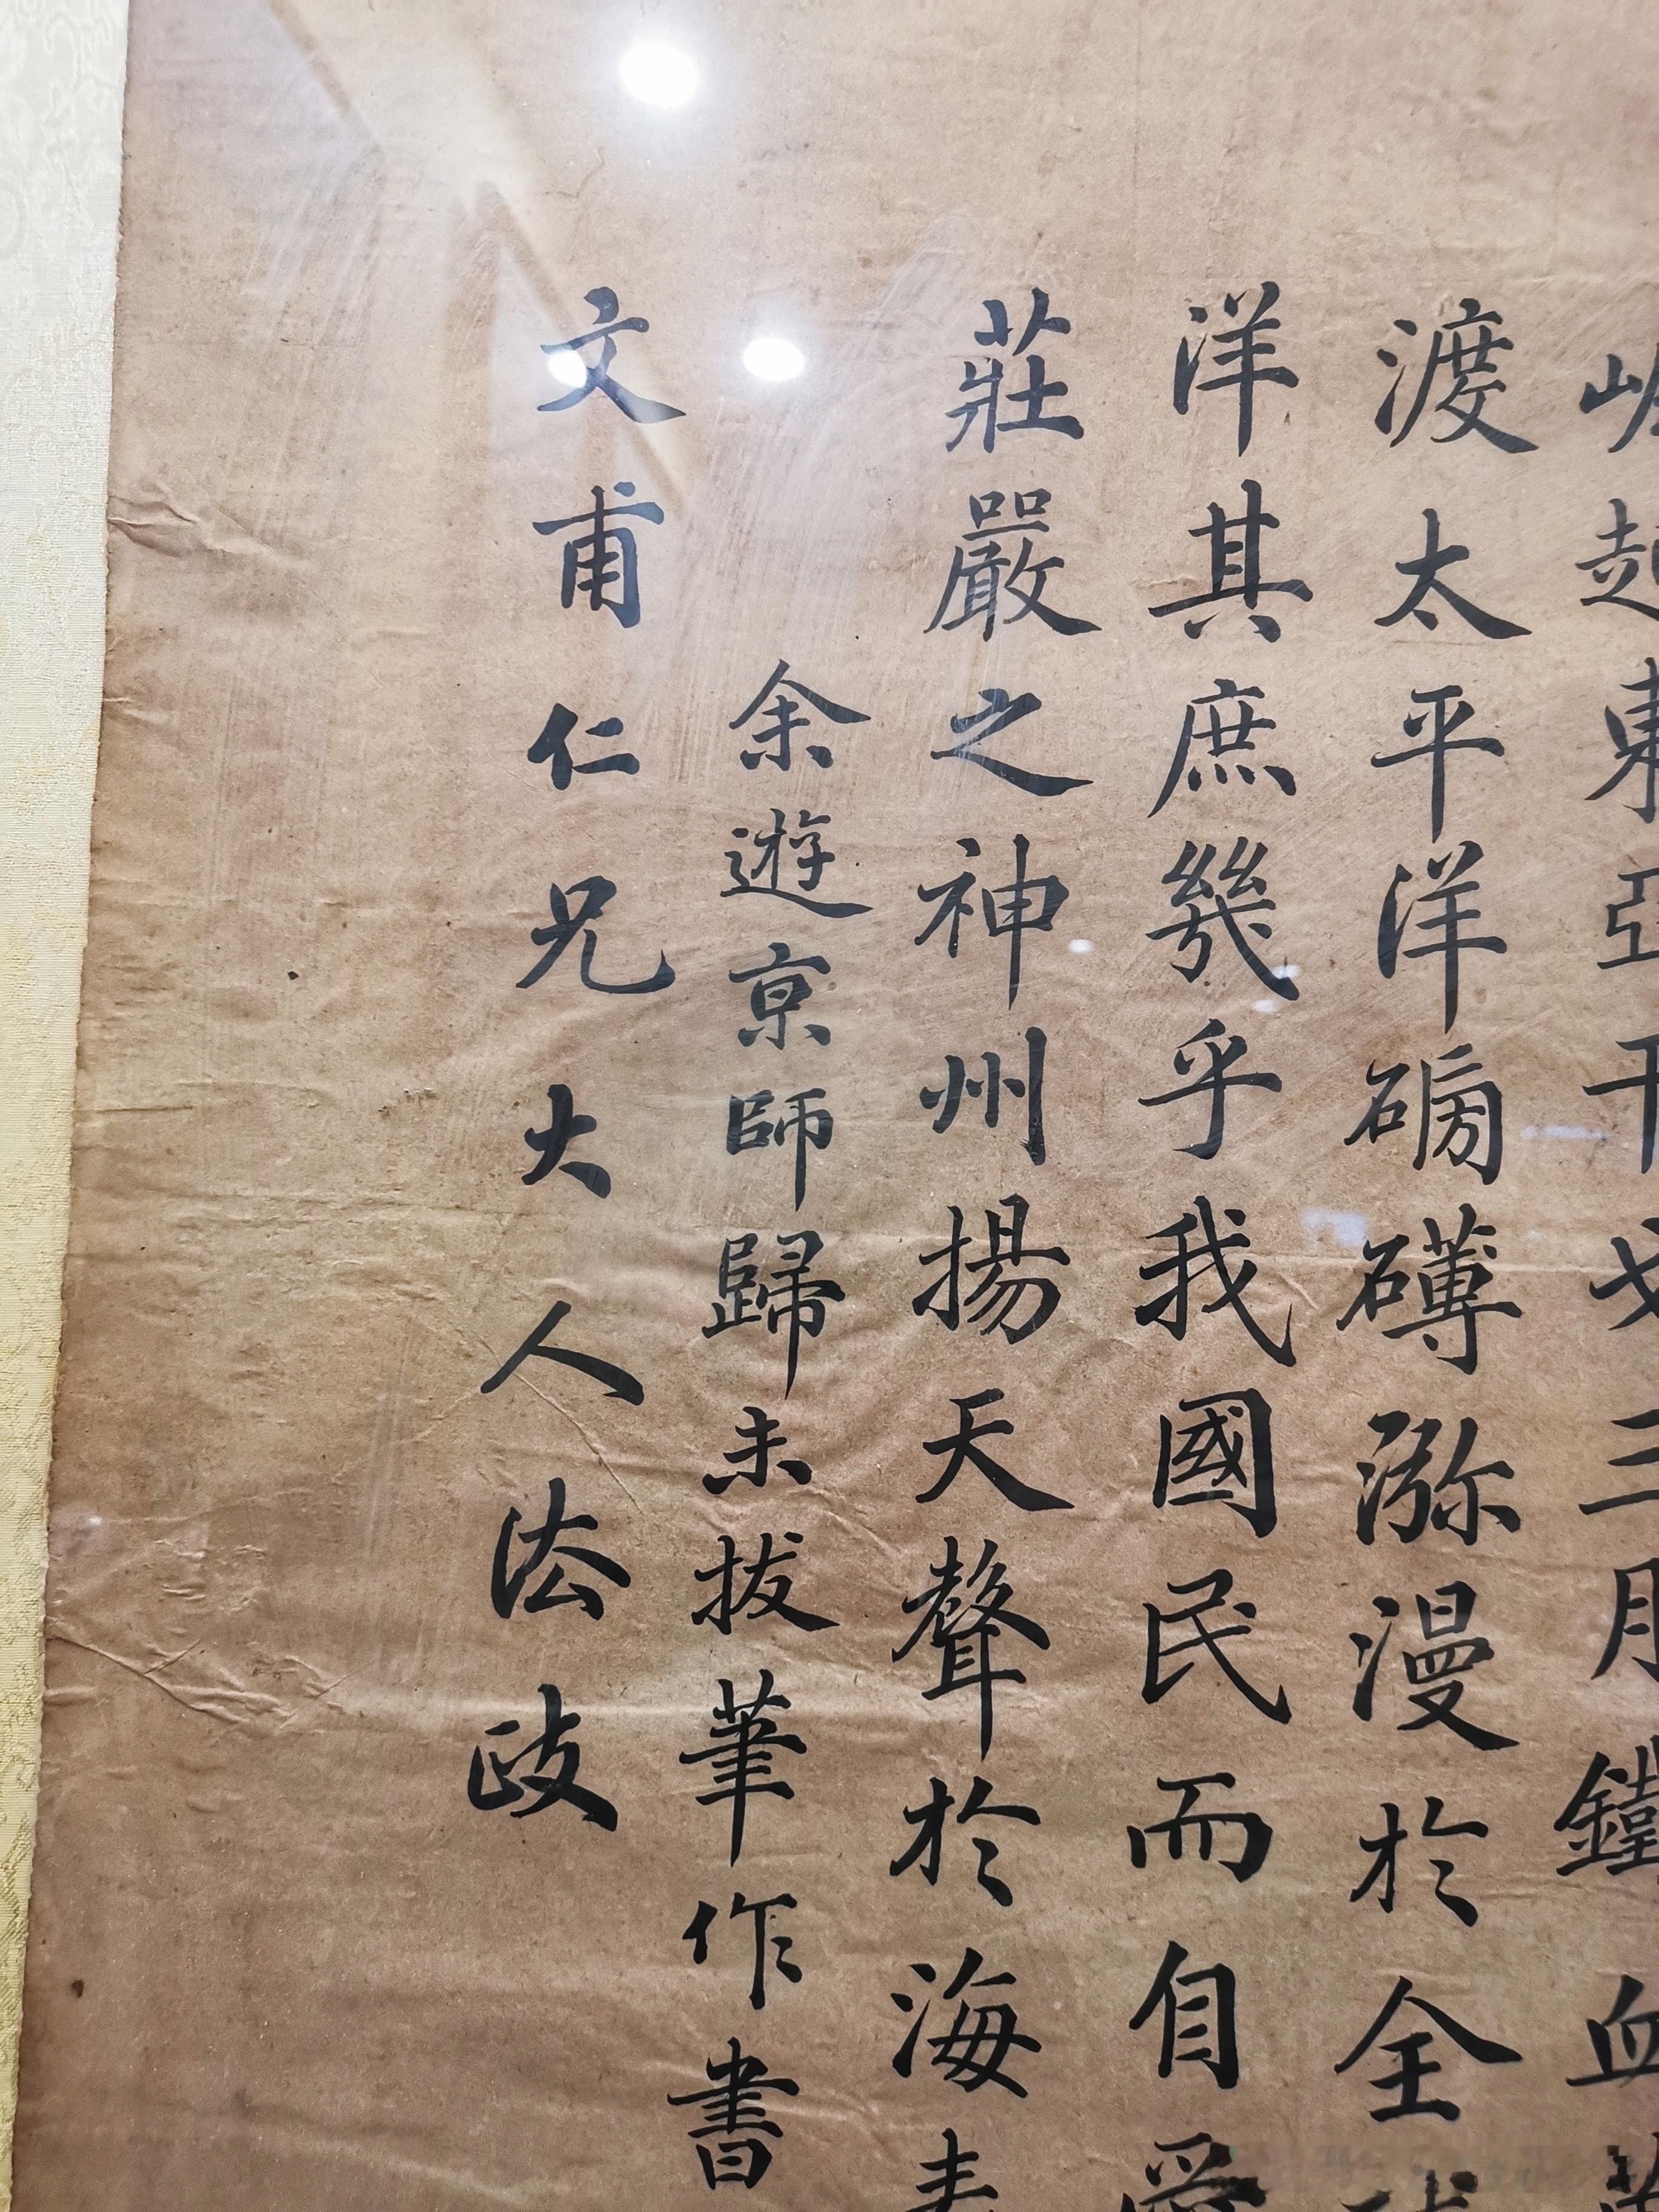 崛起東亞干戈三月鐵血
渡太平洋磅礴瀰漫於全球
洋其庶幾乎我國民而自愛
莊嚴之神州揚天聲於海表
余遊京師歸未拔筆作書
文甫仁兄大人法政